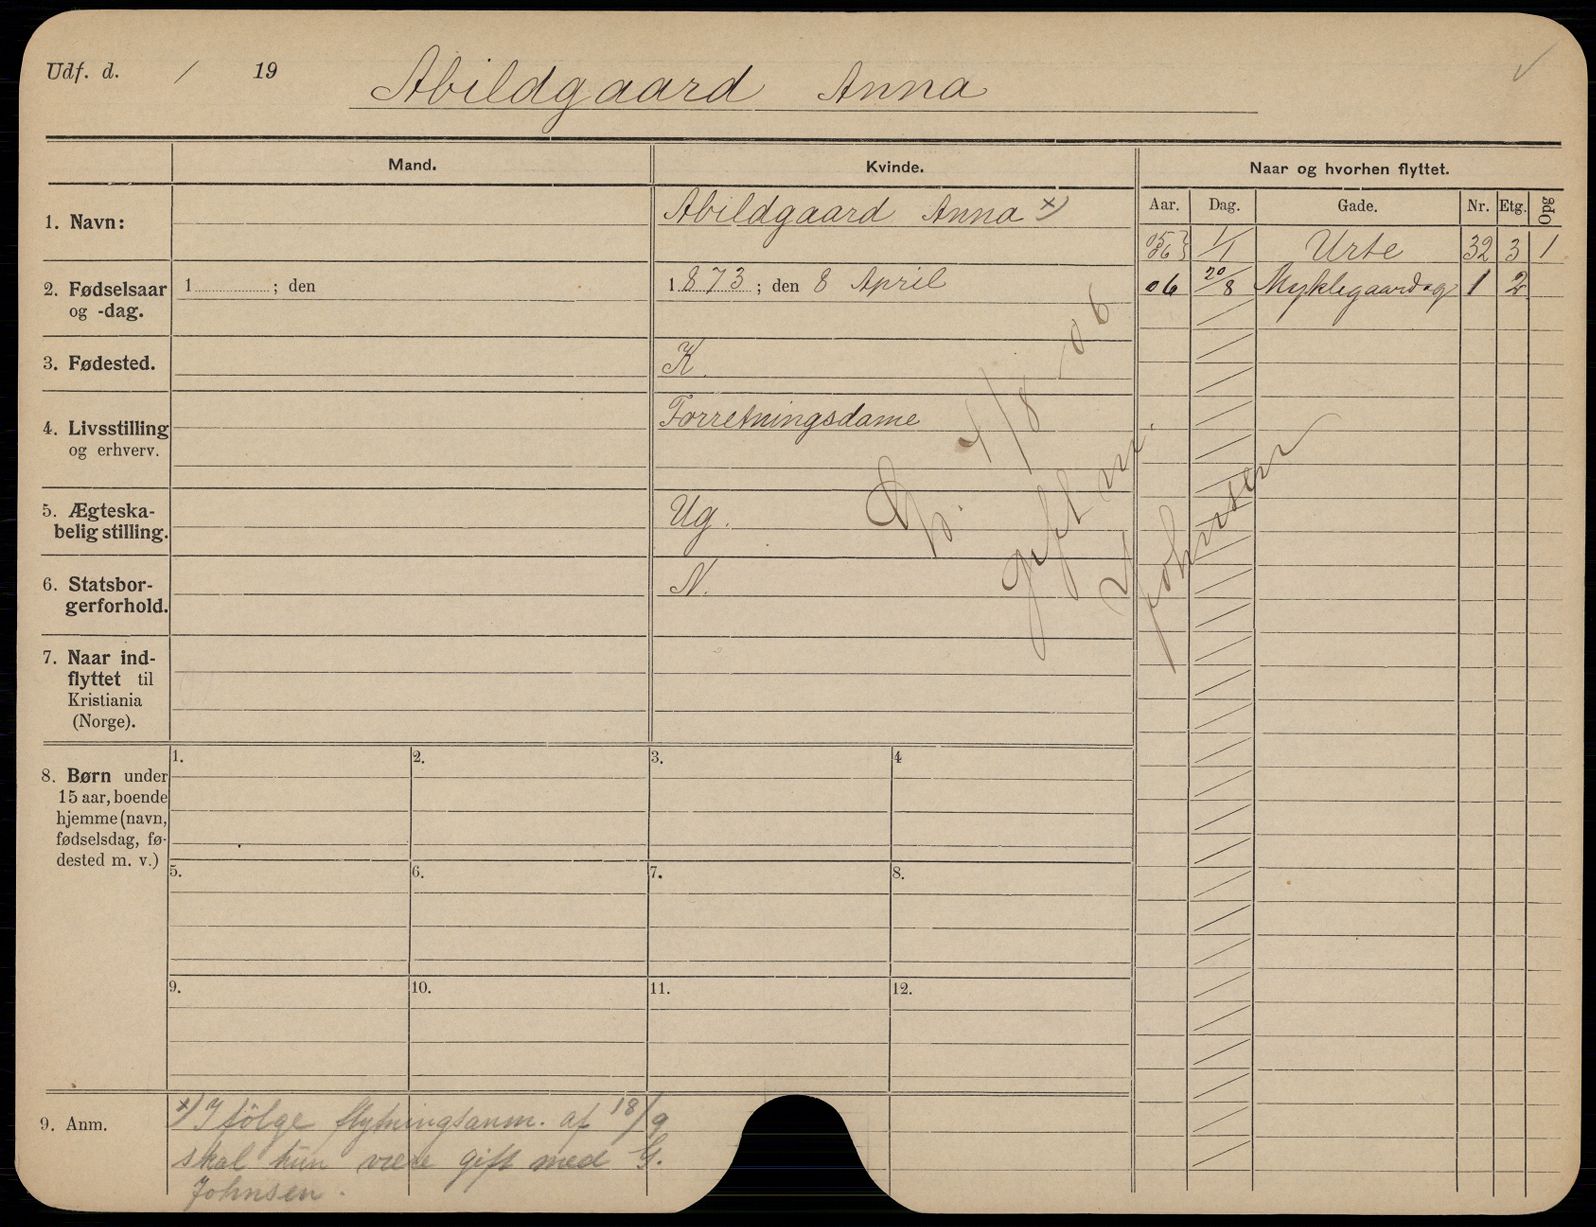 Udf. d. / 19 Abildgaard Anna
Mand. Kvinde. Naar og hvorhen flyttet.
Aar. Dag. Gade. Nr. Etg. Opg
1. Navn: Abildgaard Anna x)
05 06 } 1/1 Urte 32 3 1
2. Fødselsaar og -dag. 1 ; den 1873; den 8 April
06 20/8 Myklegaardsg 1 2
3. Fødested. K.
4. Livsstilling og erhverv. Forretningsdame
5. Ægteskabelig stilling. Ug.
6. Statsborgerforhold. N.
4/8 - 06
gift m.
Johnsen
7. Naar indflyttet til Kristiania (Norge).
8. Børn under
15 aar, boende
hjemme (navn,
fødselsdag, fø-
dested m. v.)
1. 2. 3. 4
5. 6. 7. 8.
9. 10. 11. 12.
9. Anm. x) Ifölge flytningsanm. af 18/9
skal hun være gift med G.
Johnsen.